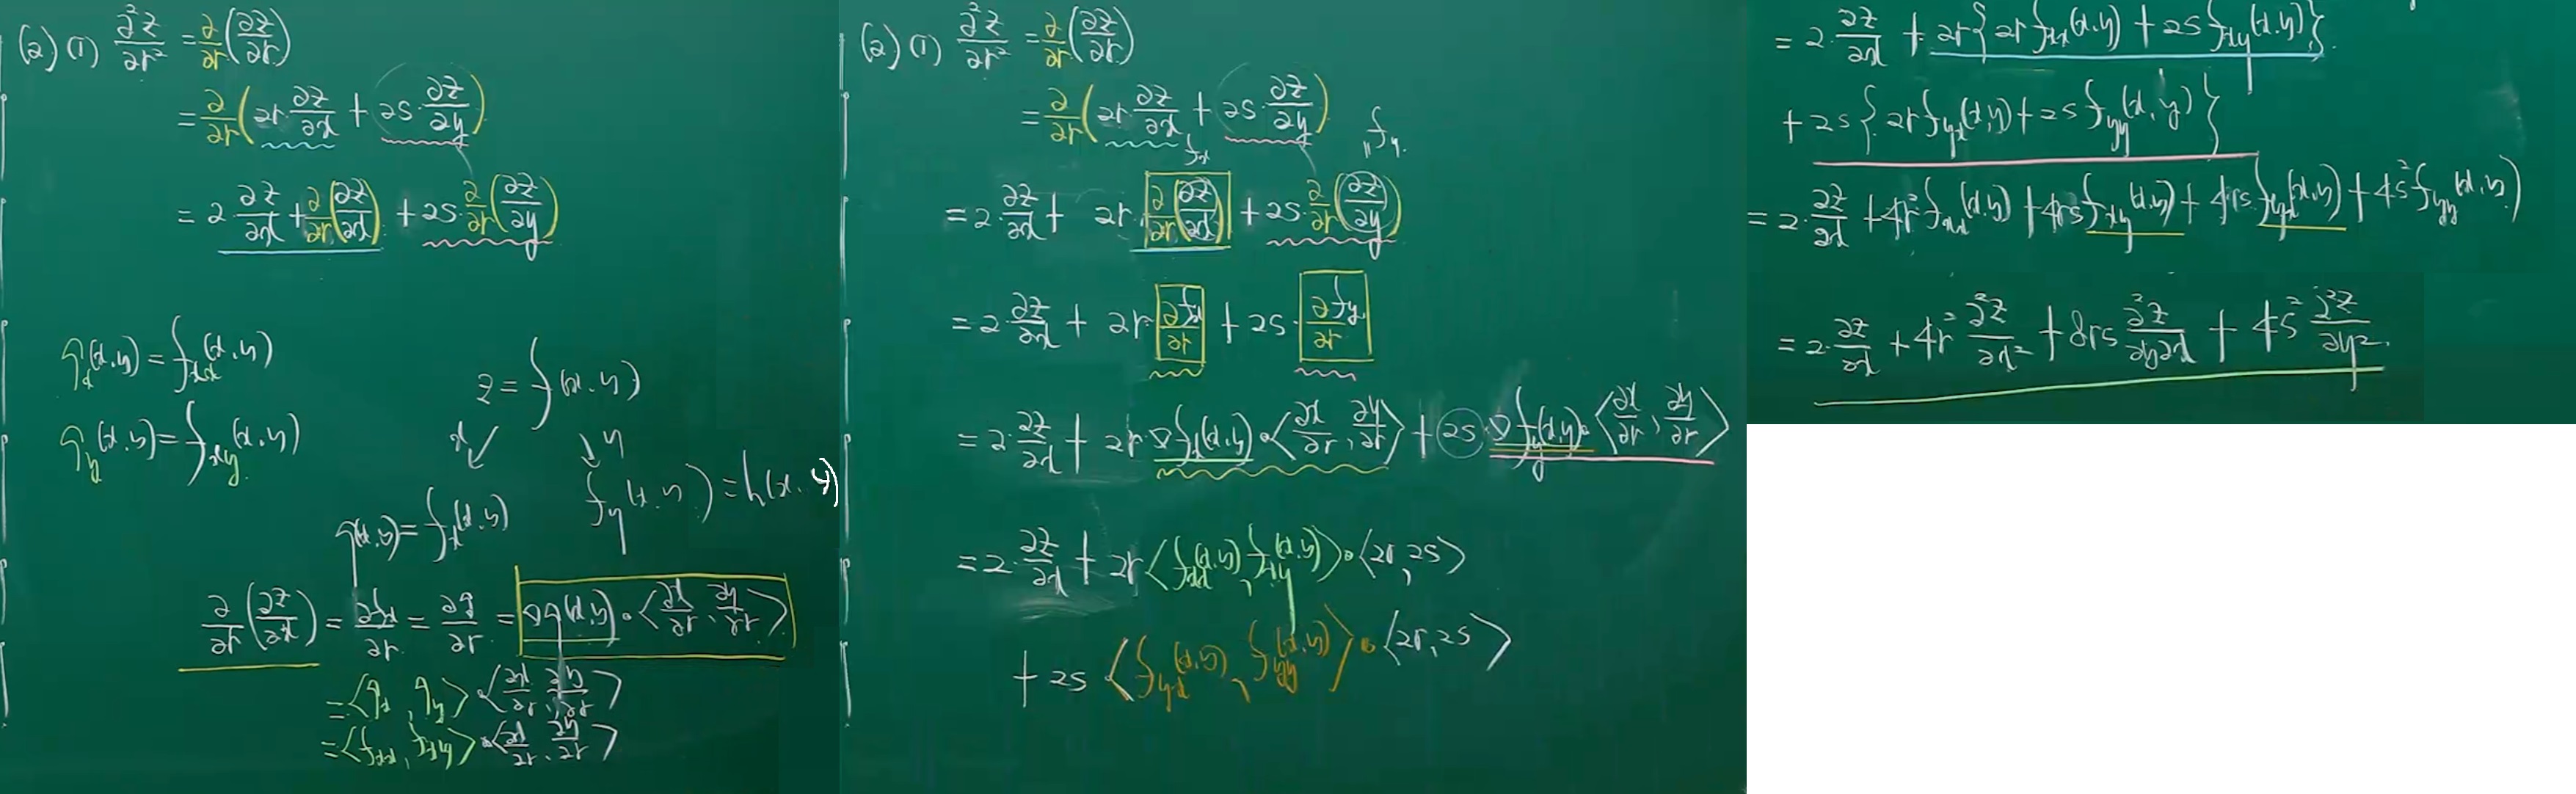 (2) (1) ∂²z/∂r² = ∂/∂r (∂z/∂r)
= ∂/∂r (2r·∂z/∂x + 2s·∂z/∂y)
= 2·∂z/∂x + ∂/∂r (∂z/∂x) + 2s·∂/∂r (∂z/∂y)
g_x(x,y) = f_xx(x,y)
g_y(x,y) = f_xy(x,y)
z = f(x,y)
x ↙ ↘ y
g(x,y) = f_x(x,y)
f_y(x,y) = h(x,y)
∂/∂r (∂z/∂x) = ∂f_x/∂r = ∂g/∂r = ∇g(x,y)•⟨∂x/∂r, ∂y/∂r⟩
= ⟨g_x, g_y⟩•⟨∂x/∂r, ∂y/∂r⟩
= ⟨f_xx, f_xy⟩•⟨∂x/∂r, ∂y/∂r⟩
(2) (1) ∂²z/∂r² = ∂/∂r (∂z/∂r)
= ∂/∂r (2r·∂z/∂x + 2s·∂z/∂y)
f_x
" f_y
= 2·∂z/∂x + 2r·∂/∂r (∂z/∂x) + 2s·∂/∂r (∂z/∂y)
= 2·∂z/∂x + 2r·∂f_x/∂r + 2s·∂f_y/∂r
= 2·∂z/∂x + 2r·∇f_x(x,y)•⟨∂x/∂r, ∂y/∂r⟩ + 2s·∇f_y(x,y)•⟨∂x/∂r, ∂y/∂r⟩
= 2·∂z/∂x + 2r⟨f_xx(x,y), f_xy(x,y)⟩•⟨2r, 2s⟩
+ 2s⟨f_yx(x,y), f_yy(x,y)⟩•⟨2r, 2s⟩
= 2·∂z/∂x + 2r{2r f_xx(x,y) + 2s f_xy(x,y)}
+ 2s{2r f_yx(x,y) + 2s f_yy(x,y)}
= 2·∂z/∂x + 4r² f_xx(x,y) + 4rs f_xy(x,y) + 4rs f_yx(x,y) + 4s² f_yy(x,y)
= 2·∂z/∂x + 4r² ∂²z/∂x² + 8rs ∂²z/∂y∂x + 4s² ∂²z/∂y²